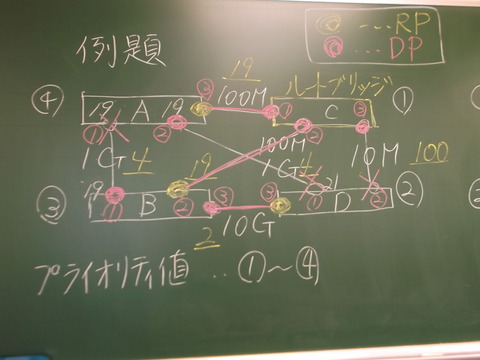 例題
◎…RP
◎…DP
19
ルートブリッジ
④ 19 A 19 ③ 100M ① C ③ ①
① ② ②
1G 4 19 100M 1G 4 10M 100
③ 19 B ③ ③ 21 D ②
① ② ① ②
2 10G
プライオリティ値 ‥ ①~④